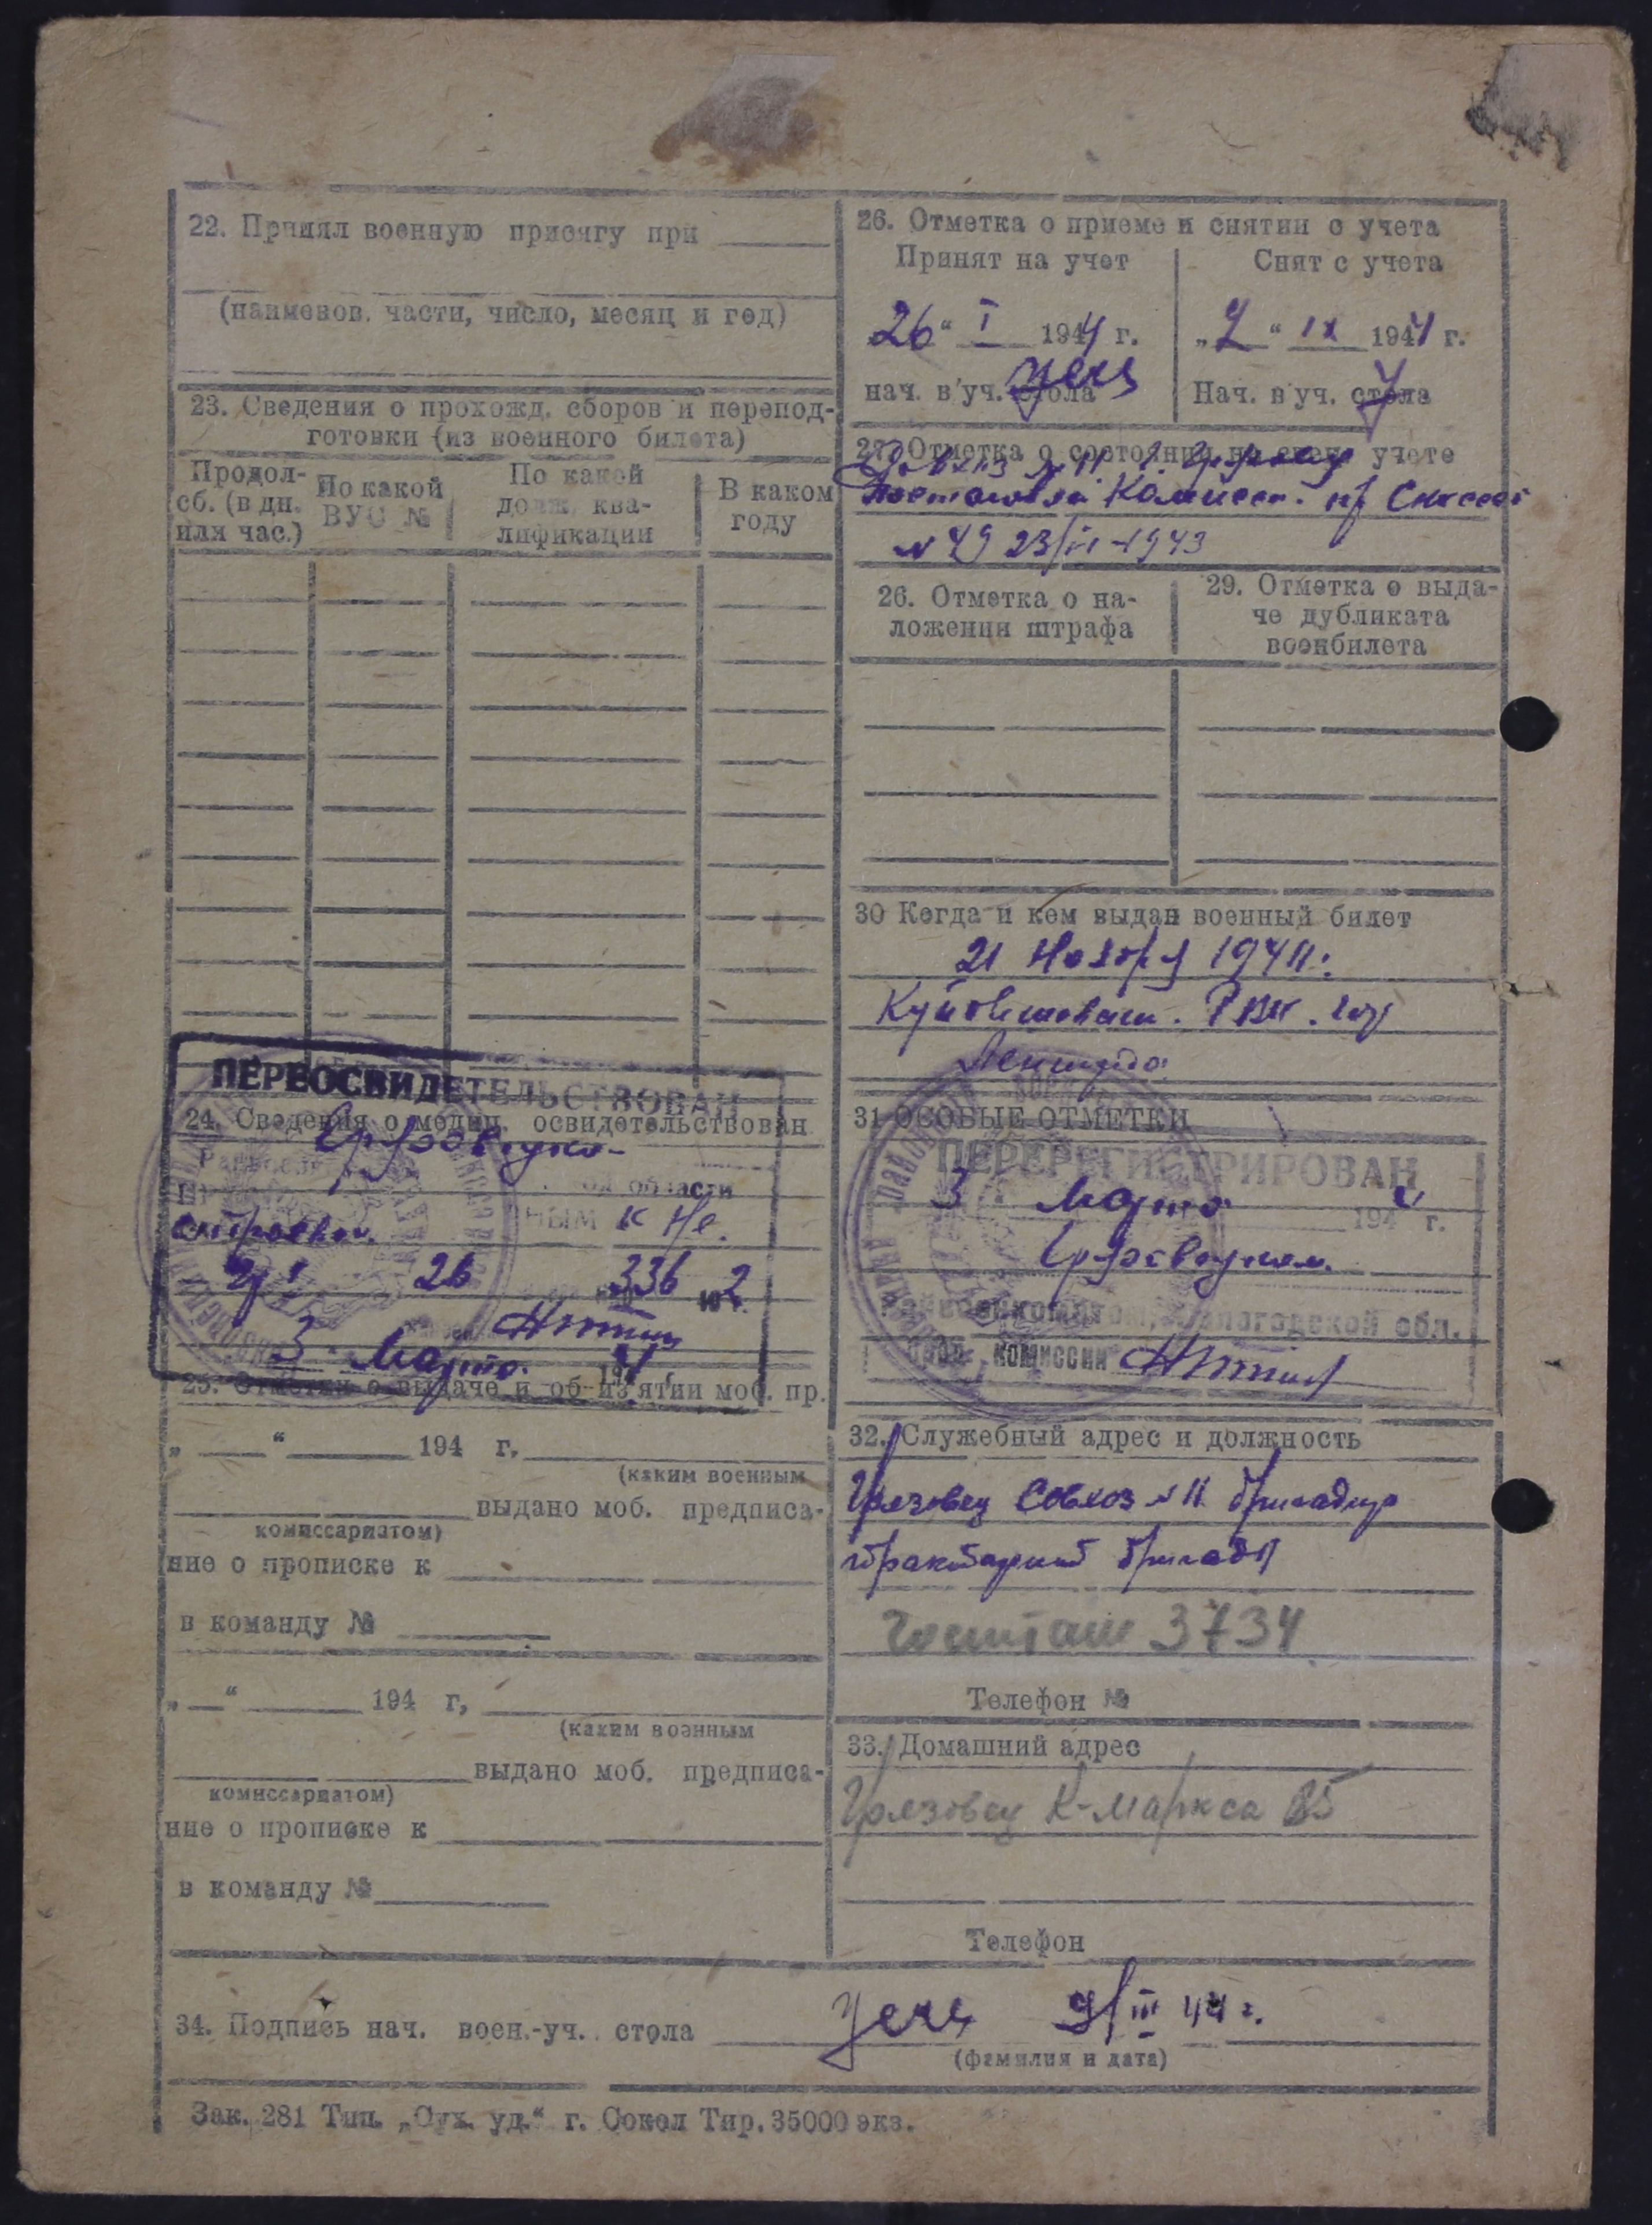 22. Принял военную присягу при
(наименов. части, число, месяц и год)
23. Сведения о прохожд. сборов и перепод-
готовки (из военного билета)
Продол-
сб. (в дн.
или час.)
По какой
ВУС №
По какой
долж. ква-
лификации
В каком
году
ПЕРЕОСВИДЕТЕЛЬСТВОВАН
24. Сведения о медиц. освидетельствован
области
НЫМ к Не.
строевой.
26 336 ю 2
3 Марта 194
25. Отметки о выдаче и об из'ятии моб. пр.
„ “ 194 г.
(каким военным
выдано моб. предписа-
комиссариатом)
ние о прописке к
в команду №
„ “ 194 г,
(каким военным
выдано моб. предписа-
комиссариатом)
ние о прописке к
в команду №
26. Отметка о приеме и снятии с учета
Принят на учет
26 “ I 1944 г.
нач. в уч. стола
Снят с учета
„ “ IX 1944 г.
Нач. в уч. стола
27. Отметка о состоянии на спец учете
№ 49 23/ 1943
26. Отметка о на-
ложении штрафа
29. Отметка о выда-
че дубликата
военбилета
30 Когда и кем выдан военный билет
21 Ноября 1941 г.
РВК. гор
Ленинграда
31 ОСОБЫЕ ОТМЕТКИ
ПЕРЕРЕГИСТРИРОВАН
3 Марта 194 г.
Райвоенкоматом, Вологодской обл.
пред. комиссии
32. Служебный адрес и должность
Грязовец Совхоз № 11 бригадир
тракторной бригады
3734
Телефон №
33. Домашний адрес
Грязовец К-Маркса 85
Телефон
34. Подпись нач. воен.-уч. стола 9/III 44 г.
(фамилия и дата)
Зак. 281 Тип. „Сух. уд.“ г. Сокол Тир. 35000 экз.